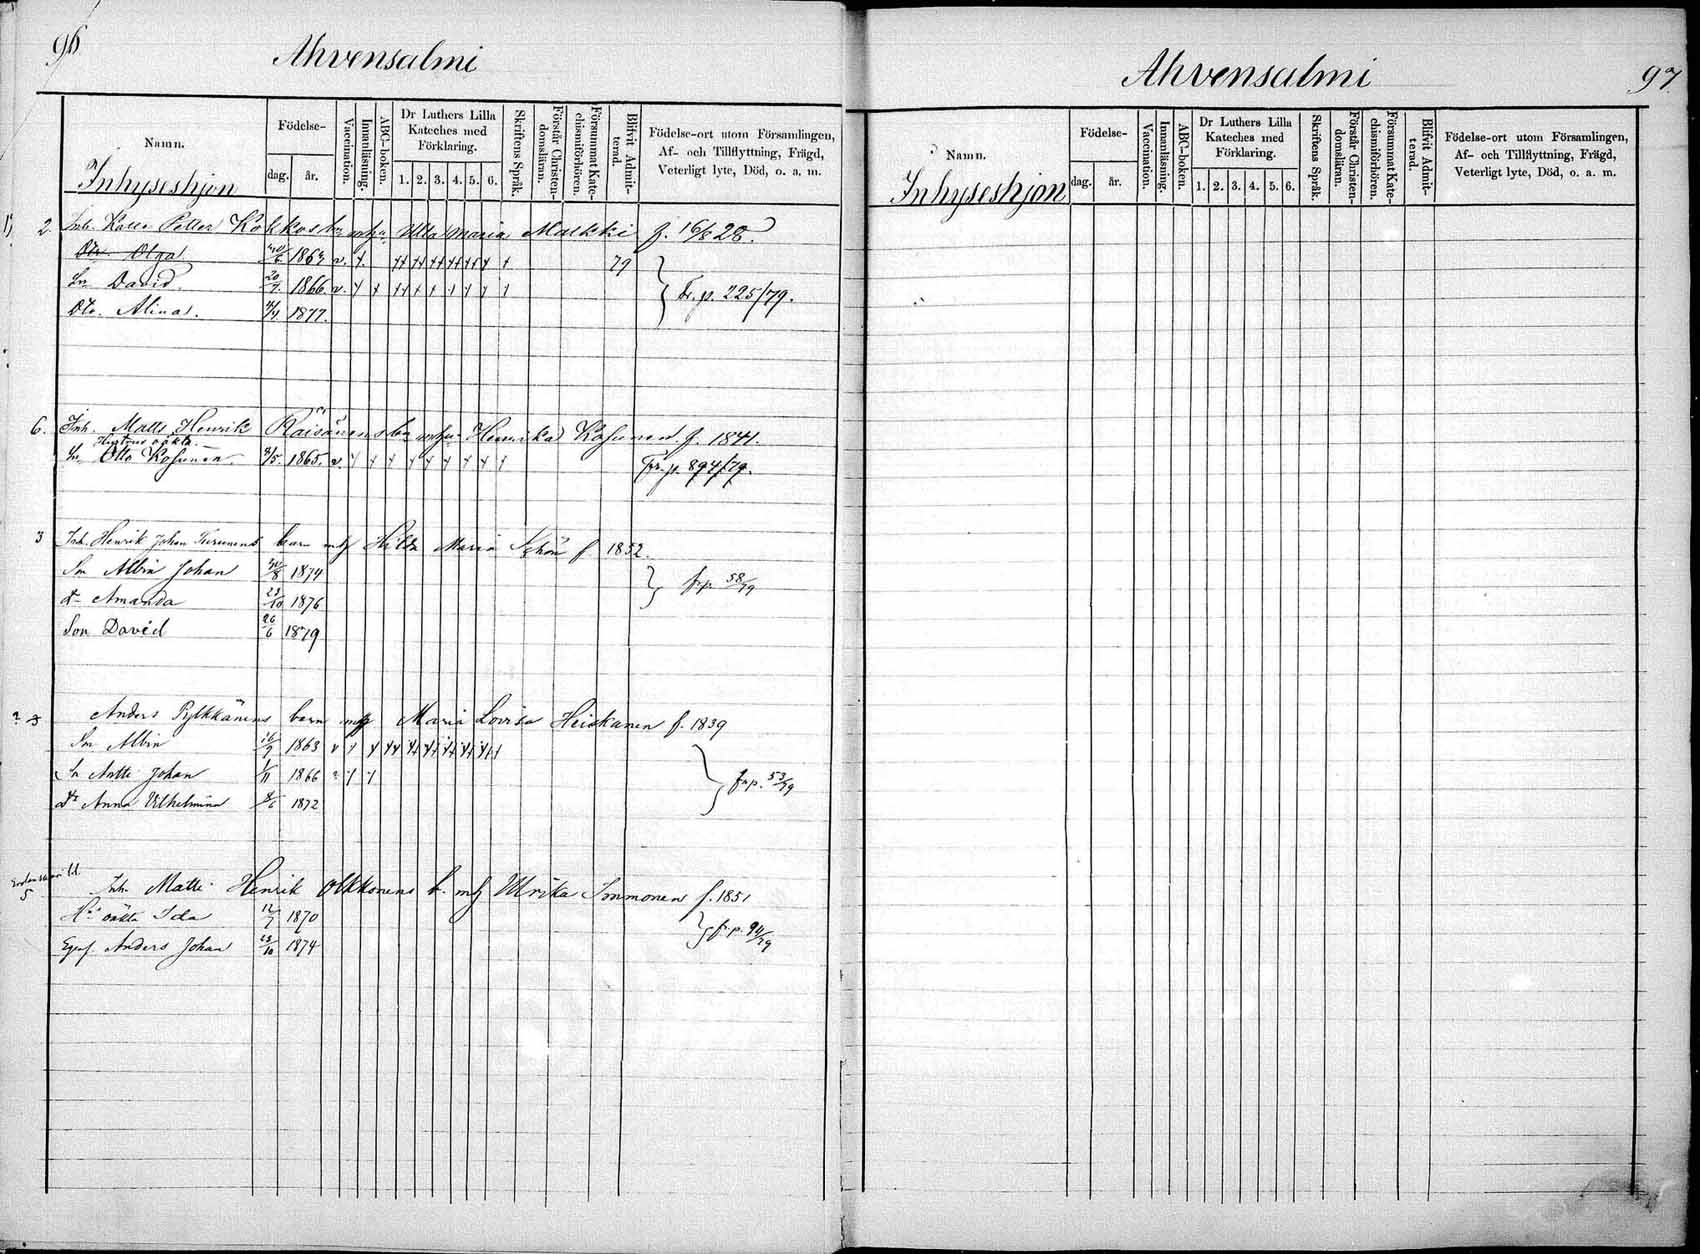 96
Ahvensalmi
Namn.
Inhyseshjon
Födelse-
dag.
år.
Vaccination.
Innanläsning.
ABC-boken.
Dr Luthers Lilla
Kateches med
Förklaring.
1. 2. 3. 4. 5. 6.
Skriftens Språk.
Förstår Christen-
domsläran.
Försummat Kate-
chismiförhören.
Blifvit Admit-
terad.
Födelse-ort utom Församlingen,
Af- och Tillflyttning, Frägd,
Veterligt lyte, Död, o. a. m.
2. Inh. Petter Kokkos bn m hu Ulla Maria Malkki f. 16/8 28.
Dtr Olga 1863 v. 79
Sn David. 20/7. 1866. v. Fr. p. 225/79.
Dtr. Alina. 1877.
6. Inh. Matts Henrik Räisänens bn m hu Henrika Kosunen f. 1841.
Hustruns oäkta
Sn Otto Kosunen. 8/5. 1865. v. Fr. p. 894/79.
3 Inh. Henrik Johan Turunens barn m hu Hilda Maria f. 1852.
Sn Albin Johan 30/8 1874 fr p. 58/79
Dr Amanda 23/10 1876
Son David 26/6 1879
Anders Pylkkänens barn m h Maria Lovisa Heiskanen f. 1839
Sn Albin 16/9 1863
Sn Antti Johan 1/11 1866 fr p. 53/79
Dr Anna Vilhelmina 8/6 1872
5 Inh. Matti Henrik Olkkonens b. m h Ulrika Immonen f. 1851
Hs oäkta Ida 12/7 1870 fr p. 94/79
Anders Johan 23/10 1874
Ahvensalmi
97
Namn.
Inhyseshjon
Födelse-
dag.
år.
Vaccination.
Innanläsning.
ABC-boken.
Dr Luthers Lilla
Kateches med
Förklaring.
1. 2. 3. 4. 5. 6.
Skriftens Språk.
Förstår Christen-
domsläran.
Försummat Kate-
chismiförhören.
Blifvit Admit-
terad.
Födelse-ort utom Församlingen,
Af- och Tillflyttning, Frägd,
Veterligt lyte, Död, o. a. m.